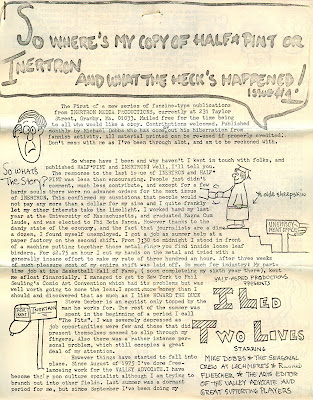 SO WHERE'S MY COPY OF HALF PINT OR
INERTRON
AND WHAT THE HECK'S HAPPENED!
ISSUE #1
The First of a new series of fanzine-type publications
from INERTRON MEDIA PRODUCTIONS, currently at 231 Taylor
Street, Granby, Ma. 01033. Mailed free for the time being
to all who would like a copy. Contributions welcomed. Published
monthly by Michael Dobbs who has come out his hibernation from
fanzine activity. All material printed can be re-used if properly credited.
Don't mess with me as I've been through alot, and am to be reckoned with.
So where have I been and why haven't I kept in touch with folks, and
published HALF*PINT and INERTRON? Well, I'll tell you.
The response to the last issue of INERTRON and HALF*
PINT was less than encouraging. People just didn't
comment, much less contribute, and except for a few
hardy souls there were no advance orders for the next issue
of INERTRON. This confirmed my suspicions that people would
not pay any more than a dollar for my zine and I quite frankly
let my other interests take the limelight. I worked hard my last
year at the University of Massachusetts, and graduated Magna Cum
Laude, and was elected to Phi Beta Kappa. However thanks to the
dandy state of the economy, and the fact that journalists are a dime
a dozen, I found myself unemployed. I got a job last summer help at a
paper factory on the second shift. From 3:30 to midnight I stood in front
of a machine putting together those metal rings you find inside loose leaf
binders. For $2.75 an hour I cut my hands on the metal and tried with a
generally insane effort to make my rate of three hundred an hour. After three weeks
of such mindless work the second shift was laid off. So much for industry! My part-
time job at the Basketball Hall of Fame, ( soon completing my sixth year there), kept
me afloat financially. I managed to get to New York to Phil
Seuling's Comic Art Convention which had its problems but was
well worth going to save the loss. I spent more money than I
should and discovered that as much as I like HOWARD THE DUCK
Steve Gerber is an egotist only topped by the
man he works for. The rest of the summer was
spent in the beginning of a period I call
"The Pits". I was severely depressed as
job opportunities were few and those that did
present themselves seemed to slip through my
fingers. Also there was a rather intense per-
sonal problem, which still occupies a great
deal of my attention.
However things have started to fall into
place. Since January of 1977 I've done free-
lancing work for the VALLEY ADVOCATE. I have
become their pop culture socialist although I am trying to
branch out into other fields. Last summer was a dormant
period for me, but since September I've been doing my
SO WHATS
THE STORY
INERTRON
HALF-ASSED PRODUCTIONS
PRESENTS
I LED
TWO LIVES
STARRING
MIKE DOBBS & THE SEASONAL
CREW AT
THE NEW EDITOR
OF THE VALLEY ADVOCATE AND
GREAT SUPPORTING PLAYERS